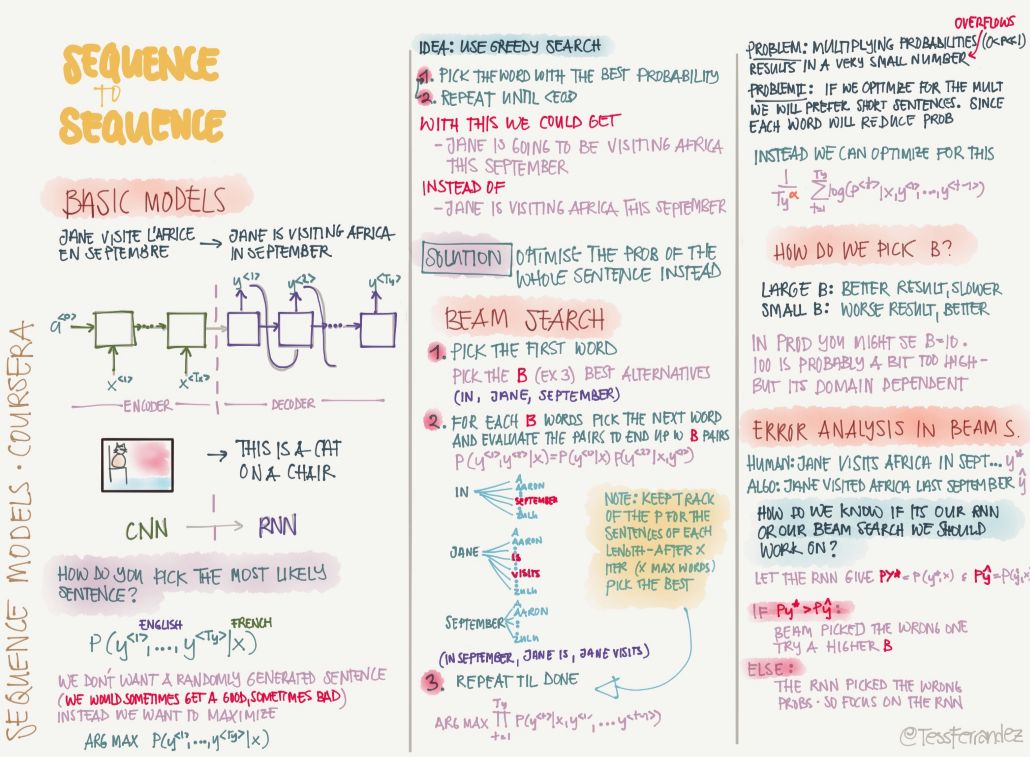 SEQUENCE
TO
SEQUENCE
BASIC MODELS
JANE VISITE L'AFRICE
EN SEPTEMBRE
→ JANE IS VISITING AFRICA
IN SEPTEMBER
a<0>
x<1>
x<Tx>
y<1>
y<2>
y<Ty>
ENCODER
DECODER
→ THIS IS A CAT
ON A CHAIR
CNN → RNN
HOW DO YOU PICK THE MOST LIKELY
SENTENCE?
ENGLISH
FRENCH
P(y<1>,...,y<Ty>|x)
WE DON'T WANT A RANDOMLY GENERATED SENTENCE
(WE WOULD SOMETIMES GET A GOOD, SOMETIMES BAD)
INSTEAD WE WANT TO MAXIMIZE
ARG MAX P(y<1>,...,y<Ty>|x)
SEQUENCE MODELS · COURSERA
IDEA: USE GREEDY SEARCH
1. PICK THE WORD WITH THE BEST PROBABILITY
2. REPEAT UNTIL <EOD
WITH THIS WE COULD GET
- JANE IS GOING TO BE VISITING AFRICA
THIS SEPTEMBER
INSTEAD OF
- JANE IS VISITING AFRICA THIS SEPTEMBER
SOLUTION
OPTIMISE THE PROB OF THE
WHOLE SENTENCE INSTEAD
BEAM SEARCH
1. PICK THE FIRST WORD
PICK THE B (EX 3) BEST ALTERNATIVES
(IN, JANE, SEPTEMBER)
2. FOR EACH B WORDS PICK THE NEXT WORD
AND EVALUATE THE PAIRS TO END UP W B PAIRS
P(y<1>,y<2>|x)=P(y<1>|x) P(y<2>|x,y<1>)
IN
A
AARON
SEPTEMBER
ZULU
JANE
A
AARON
IS
VISITS
ZULU
SEPTEMBER
A
AARON
ZULU
(IN SEPTEMBER, JANE IS, JANE VISITS)
NOTE: KEEP TRACK
OF THE P FOR THE
SENTENCES OF EACH
LENGTH-AFTER X
ITER (X MAX WORDS)
PICK THE BEST
3. REPEAT TIL DONE
ARG MAX Ty ∏ t=1 P(y<t>|x,y<1>,...y<t-1>)
OVERFLOWS
PROBLEM: MULTIPLYING PROBABILITIES (0<P<1)
RESULTS IN A VERY SMALL NUMBER
PROBLEM II: IF WE OPTIMIZE FOR THE MULT
WE WILL PREFER SHORT SENTENCES. SINCE
EACH WORD WILL REDUCE PROB
INSTEAD WE CAN OPTIMIZE FOR THIS
1/Ty^α Ty ∑ t=1 log(P<t>|x,y<1>,...,y<t-1>)
HOW DO WE PICK B?
LARGE B: BETTER RESULT, SLOWER
SMALL B: WORSE RESULT, BETTER
IN PROD YOU MIGHT SE B=10.
100 IS PROBABLY A BIT TOO HIGH-
BUT ITS DOMAIN DEPENDENT
ERROR ANALYSIS IN BEAM S.
HUMAN: JANE VISITS AFRICA IN SEPT... y*
ALGO: JANE VISITED AFRICA LAST SEPTEMBER ŷ
HOW DO WE KNOW IF ITS OUR RNN
OR OUR BEAM SEARCH WE SHOULD
WORK ON?
LET THE RNN GIVE Py*=P(y*,x) & Pŷ=P(ŷ,x
IF Py*>Pŷ:
BEAM PICKED THE WRONG ONE
TRY A HIGHER B
ELSE:
THE RNN PICKED THE WRONG
PROBS. SO FOCUS ON THE RNN
@TessFerrandez